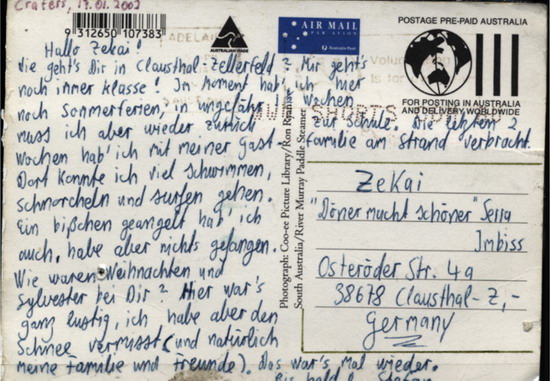 Crafers, 17.01.2002
9 312650 107383
ADELAI
AUSTRALIAN MADE
AIR MAIL
PAR AVION
Australia Post
POSTAGE PRE-PAID AUSTRALIA
FOR POSTING IN AUSTRALIA
AND DELIVERY WORLDWIDE
Hallo Zekai!
Wie geht's Dir in Clausthal-Zellerfeld? Mir geht's
noch immer klasse! Im Moment hab' ich hier
noch Sommerferien, in ungefähr 1 Wochen
muss ich aber wieder zurück zur Schule. Die letzten 2
Wochen hab' ich mit meiner Gast-familie am Strand verbracht.
Dort konnte ich viel schwimmen,
schnorcheln und surfen gehen.
Ein bißchen geangelt hab' ich
auch, habe aber nichts gefangen.
Wie waren Weihnachten und
Sylvester bei Dir? Hier war's
ganz lustig, ich habe aber den
Schnee vermisst (und natürlich
meine Familie und Freunde). Das war's mal wieder.
Bis bald! Stefan
Photograph: Coo-ee Picture Library/Ron Ryan
South Australia/River Murray Paddle Steamer
Zekai
"Döner macht schöner" Serra
Imbiss
Osteröder Str. 4a
38678 Clausthal-Z,-
Germany